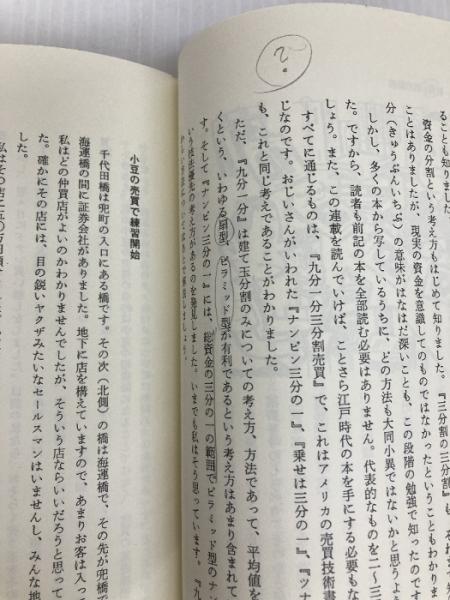 ?
ることも知りました。
資金の分割という考え方もはじめて知りました。『三分割の三分割』も、それ
ことはありましたが、現実の資金を意識してのものではなかったということもわかりま
分（きゅうぶんいちぶ）の意味がはなはだ深いことも、この段階の勉強で知ったのです
しかし、多くの本から写しているうちに、どの方法も大同小異ではないかと思うよ
た。ですから、読者も前記の本を全部読む必要はありません。代表的なものを二～三
しょう。また、この連載を読んでいけば、ことさら江戸時代の本を手にする必要もな
すべてに通じるものは、『九分一分三分割売買』で、これはアメリカの売買技術書
じなのです。おじいさんがいわれた『ナンピン三分の一』、『乗せは三分の一』、『ツナ
も、これと同じ考えであることがわかりました。
ただ、『九分一分』は建て玉分割のみについての考え方、方法であって、平均値を
くという、いわゆる扇型、ピラミッド型が有利であるという考え方はあまり含まれて
す。そして『ナンピン三分の一』には、総資金の三分の一の範囲でピラミッド型のナン
いう技法優先の考え方があるのを発見しました。いまでも私はそう思っています。『九
小豆の売買で練習開始
千代田橋は兜町の入口にある橋です。その次（北側）の橋は海運橋で、その先が兜橋で
海運橋の間に証券会社がありました。地下に店を構えていますので、あまりお客は入っ
私はどの仲買店がよいのかわかりませんでしたが、そういう店ならいいだろうと思って
た。確かにその店には、目の鋭いヤクザみたいなセールスマンはいませんし、みんな地